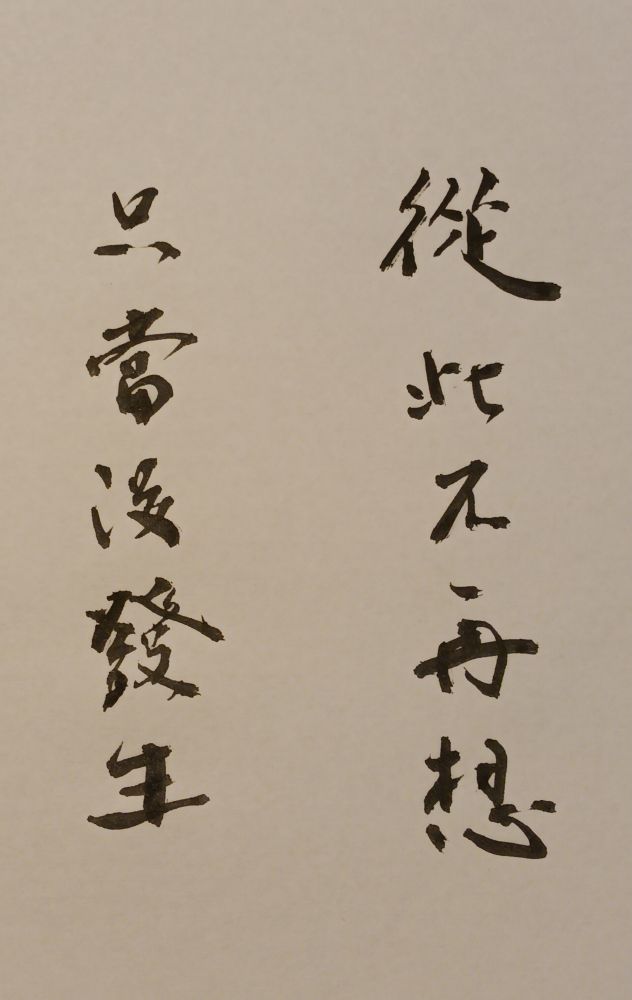 從此不再想
只當沒發生